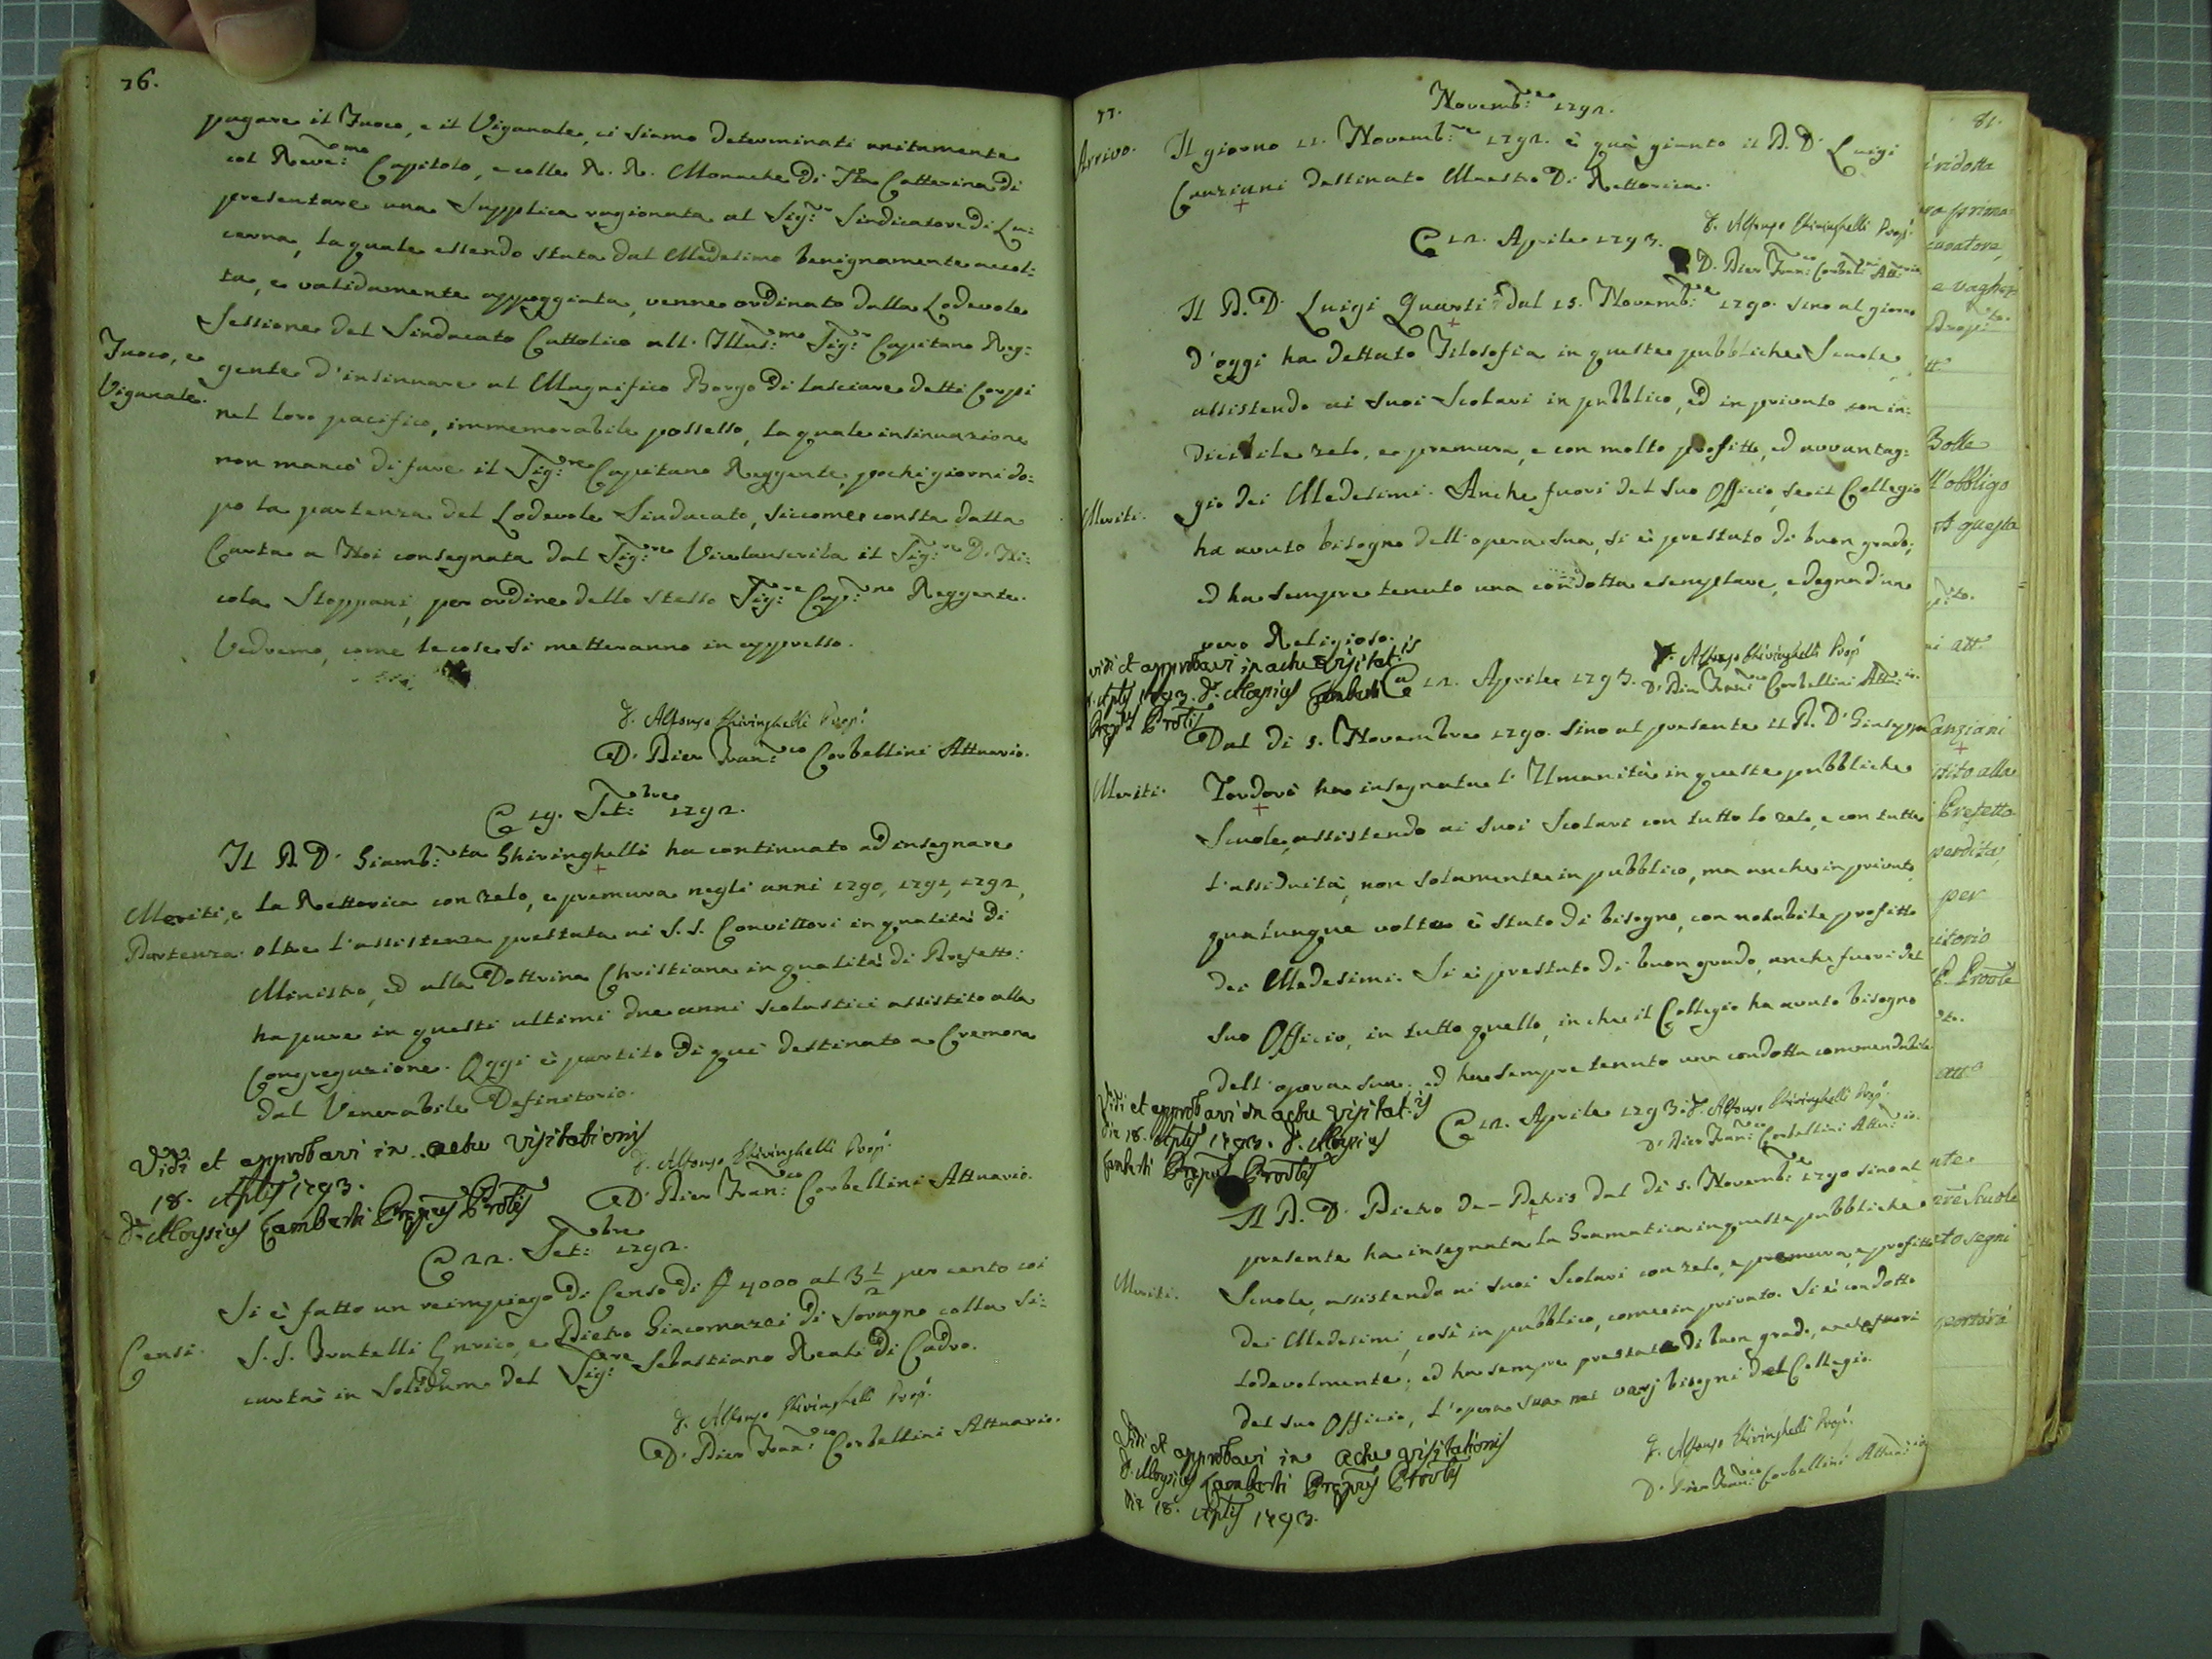 76.
pagare il Fuoco, e il Viganale, ci siamo determinati unitamente
col Reve:mo Capitolo, e colle R. R. Monache di Sta Catterina di
presentare una Supplica ragionata al Sig:r Sindicatore di Lu:
cerna, la quale essendo stata dal Medesimo benignamente accol:
ta, e validamente appoggiata, venne ordinato dalla Lodevole
Sessione del Sindacato Cattolico all' Illus:mo Sig:r Capitano Reg:
Fuoco, e
Viganale.
gente d'insinuare al Magnifico Borgo di lasciare detti Corpi
nel loro pacifico, immemorabile possesso, la quale insinuazione
non mancò di fare il Sig:re Capitano Reggente, pochi giorni do:
po la partenza del Lodevole Sindacato, siccome consta dalla
Carta a Noi consegnata dal Sig:re Vicelanscriba il Sig:re D. Ni:
cola Stoppani, per ordine dello stesso Sig:re Cap:no Reggente.
Vedremo, come le cose si metteranno in appresso.
D. Alfonso Ghiringhelli Prop.
D. Pier Fran:co Corbellini Attuario.
19. Set:bre 1792.
Il R. D. Giamb:ta Ghiringhelli ha continuato ad insegnare
Meriti, e
Partenza.
la Rettorica con zelo, e premura negli anni 1790, 1791, 1792,
oltre l'assistenza prestata ai S. S. Convittori in qualità di
Ministro, ed alla Dottrina Christiana in qualità di Prefetto:
ha pure in questi ultimi due anni scolastici assistito alla
Congregazione. Oggi è partito di quì destinato a Cremona
dal Venerabile Definitorio.
Vidi et approbavi in actu visitationis
18. Aplis 1793.
D. Aloysius Lamberti Prepus Prolis
D. Alfonso Ghiringhelli Prop.
D. Pier Fran:co Corbellini Attuario.
22. Set:bre 1792.
Si è fatto un reimpiego di Censo di f 4000 al 3 1/2 per cento coi
Censi.
S. S. Fratelli Enrico, e Pietro Giacomazzi di Sovagno colla si:
curtà in solidum del Sig:re Sebastiano Reali di Cadro.
D. Alfonso Ghiringhelli Prop.
D. Pier Fran:co Corbellini Attuario.
77.
Novemb:e 1792.
Arrivo.
Il giorno 11. Novemb:re 1792. è quà giunto il R. D. Luigi
Canziani destinato Maestro di Rettorica.
D. Alfonso Ghiringhelli Prop.
12. Aprile 1793.
D. Pier Fran:co Corbellini Att:rio
Il R. D. Luigi Quarti dal 15. Novemb:e 1790. sino al giorno
d'oggi ha dettato Filosofia in queste pubbliche Scuole,
assistendo ai suoi Scolari in pubblico, ed in privato con in:
dicibile zelo, e premura, e con molto profitto, ed avvantag:
Meriti.
gio dei Medesimi. Anche fuori del suo Officio, se il Collegio
ha avuto bisogno dell'opera sua, si è prestato di buon grado;
ed ha sempre tenuto una condotta esemplare, e degna d'un
vero Religioso.
Vidi et approbavi in actu visitat:is
18. Aplis 1793. D. Aloysius Lamberti
Prepus Prolis
12. Aprile 1793.
D. Alfonso Ghiringhelli Prop.
D. Pier Fran:co Corbellini Attu:io.
Dal di 5. Novembre 1790. sino al presente il R. D. Giuseppe
Meriti.
Tordorò ha insegnata l'Umanità in queste pubbliche
Scuole, assistendo ai suoi Scolari con tutto lo zelo, e con tutta
l'assiduità, non solamente in pubblico, ma anche in privato,
qualunque volta è stato di bisogno, con notabile profitto
dei Medesimi. Si è prestato di buon grado, anche fuori del
suo Officio, in tutto quello, in che il Collegio ha avuto bisogno
dell'opera sua; ed ha sempre tenuto una condotta commendabile.
Vidi et approbavi in actu visitat:is
die 18. Aplis 1793. D. Aloysius
Lamberti Prepus Prolis
12. Aprile 1793.
D. Alfonso Ghiringhelli Prop.
D. Pier Fran:co Corbellini Attu:io.
Il R. D. Pietro De-Petris dal di 5. Novemb:e 1790 sino al
presente ha insegnata la Gramatica in queste pubbliche
Meriti.
Scuole, assistendo ai suoi Scolari con zelo, e premura, e profitto
dei Medesimi, così in pubblico, come in privato. Si è condotto
lodevolmente; ed ha sempre prestato di buon grado, anche fuori
del suo Officio, l'opera sua nei varj bisogni del Collegio.
Vidi et approbavi in actu visitationis
D. Aloysius Lamberti Prepus Prolis
die 18. Aplis 1793.
D. Alfonso Ghiringhelli Prop.
D. Pier Fran:co Corbellini Attua:io
81.
ridotta
prima:
curatore,
e vaghez
Bolle
l'obbligo
questa
att.
anziani
stito alla
Prefetto
perdita,
per
itorio
Scuole
to segni
portarà